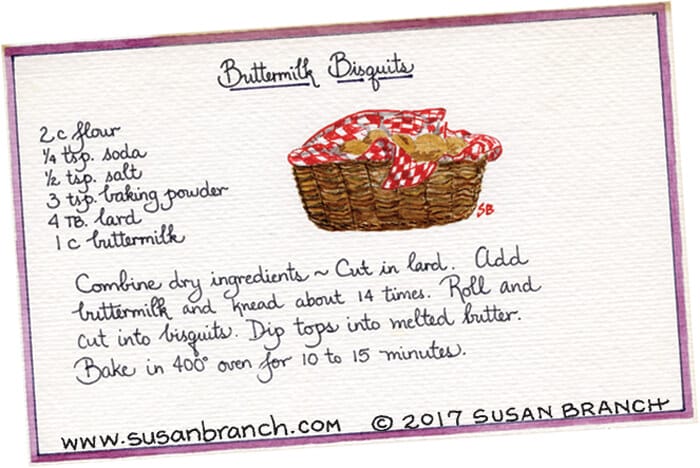 Buttermilk Bisquits
2 c flour
¼ tsp. soda
½ tsp. salt
3 tsp. baking powder
4 TB. lard
1 c buttermilk
SB
Combine dry ingredients ~ Cut in lard. Add
buttermilk and knead about 14 times. Roll and
cut into bisquits. Dip tops into melted butter.
Bake in 400° oven for 10 to 15 minutes.
www.susanbranch.com © 2017 SUSAN BRANCH